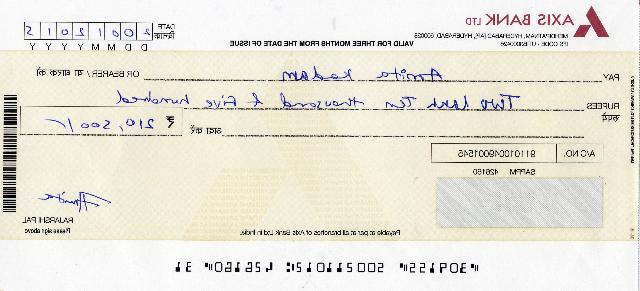 AXIS BANK LTD
MEHDIPATNAM, HYDERABAD [AP], HYDERABAD, 500028
IFS CODE: UTIB0000426
VALID FOR THREE MONTHS FROM THE DATE OF ISSUE
DATE
दिनांक
D D M M Y Y Y Y
PAY Amita Kadam OR BEARER / या धारक को
RUPEES Two Lakh Ten thousand & Five hundred
रुपये
अदा करें ₹ 210,500/-
A/C NO. 911010049001545
Payable at par at all branches of Axis Bank Ltd in India.
RAJARSHI PAL
Please sign above